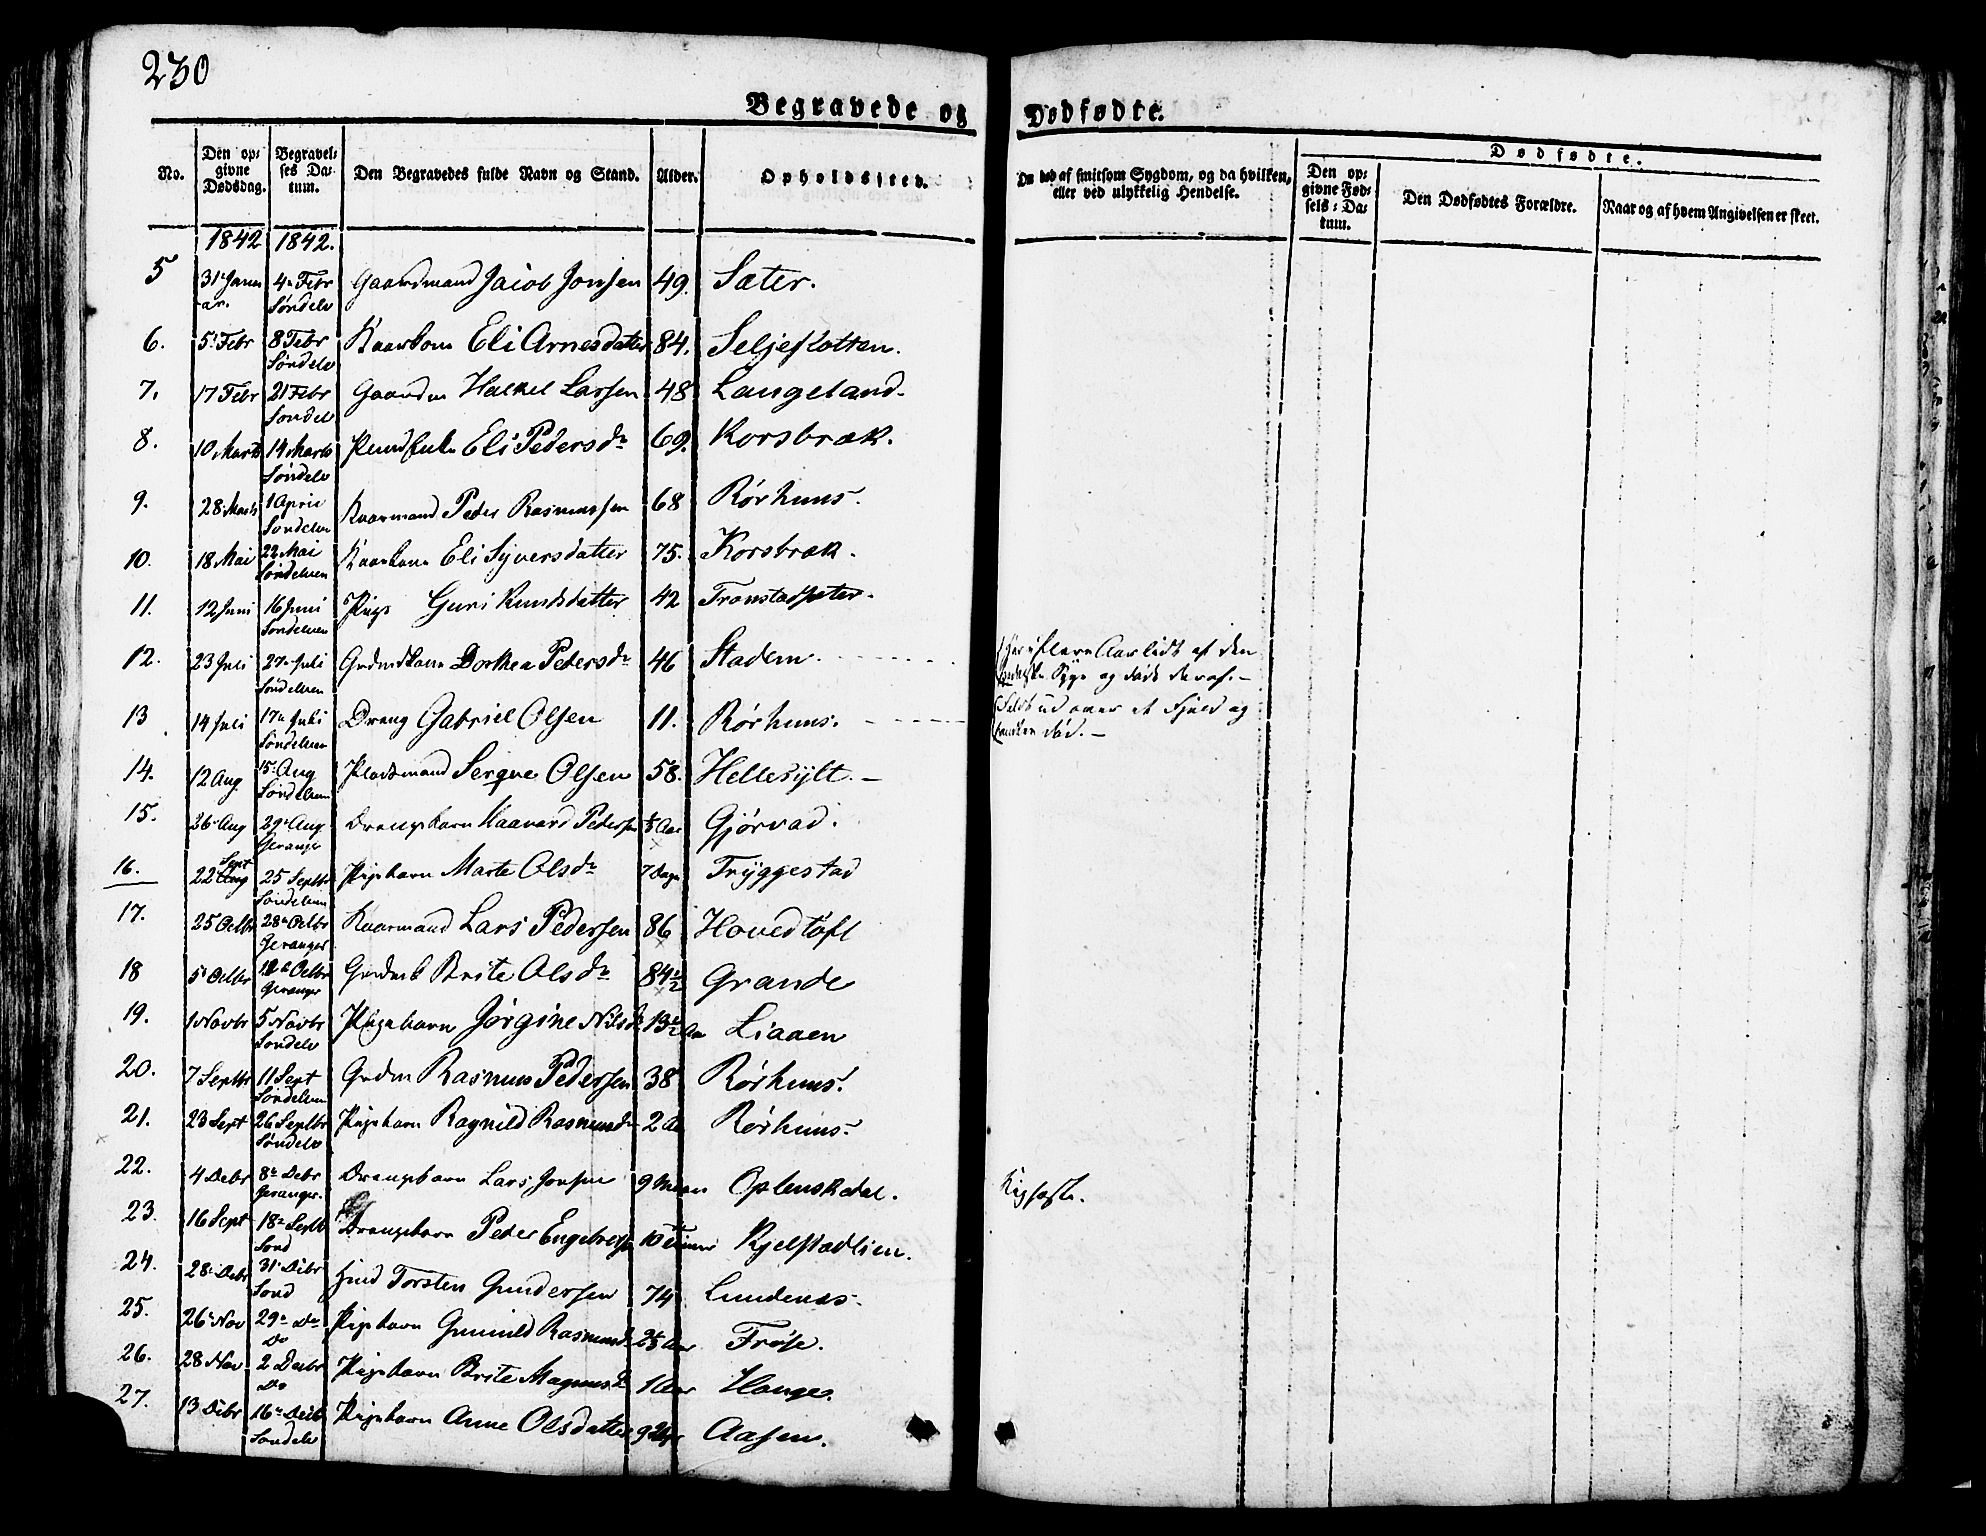 230
Begravede og Dødfødte.
No. Den opgivne Dødsdag. Begravelses Datum. Den Begravedes fulde Navn og Stand. Alder. Opholdssted. Om død af smitsom Sygdom, og da hvilken, eller ved ulykkelig Hendelse. Dødfødte. Den opgivne Fødsels-Datum. Den Dødfødtes Forældre. Naar og af hvem Angivelsen er skeet.
1842 1842.
5 31 Januar. 4 Febr Søndelv Gaardmand Jacob Jonsen 49. Sæter.
6. 5 Febr 8 Febr Søndelv Kaarkone Eli Arnesdatter 84. Seljeflotten.
7. 17 Febr 21 Febr Søndelv Gaardm Halkel Larsen 48 Langeland.
8. 10 Marts 14 Marts Søndelv Eli Pedersdr 69. Korsbræk.
9. 28 Marts 1 April Søndelven Kaarmand Peder Rasmussen 68 Rørhuus.
10. 18 Mai 22 Mai Søndelven Kaarkone Eli Syversdatter 75. Korsbræk.
11. 12 Juni 16 Juni Søndelven Pige Guri Knudsdatter 42 Tronstadsæter.
12. 23 Juli 27 Juli Søndelven Grdmdkone Dorthea Pedersdr 46 Stadem. flere Aar lidt af den spedalske Syge og døde deraf.
13 14 Juli 17 Juli Søndelven Dreng Gabriel Olsen 11. Rørhuus. Faldt ud over et Fjeld og død.
14. 12 Aug 15 Aug Søndelven Pladsmand Serque Olsen 58. Hellesylt.
15. 26 Aug 29 Aug Geranger Drengebarn Haavard Pedersen Gjørvad.
16. 22 Sept 25 Septbr Søndelven Pigebarn Marte Olsdr 7 Dage Tryggestad
17. 25 Octbr 28 Octbr Geranger Kaarmand Lars Pedersen 86 Hovedtøft
18 5 Octbr Octbr Geranger Brite Olsdr 84½ Grande
19. 1 Novbr 5 Novbr Søndelv Pigebarn Jørgine Nilsd Liaaen
20. 7 Septbr 11 Sept Søndelven Grdm Rasmus Pedersen 38 Rørhuus.
21. 23 Sept 26 Septbr Søndelv Pigebarn Ragnild Rasmusd 2 Aar Rørhuus.
22. 4 Debr 8 Debr Geranger. Drengebarn Lars Jonsen 9 Oplenskedal. Kighoste.
23. 16 Sept 18 Septb Sønd Drengebarn Peder Engebretsen 10 Timer Kjelstadlien.
24. 28 Debr 31 Debr Sønd Torsten Gundersen 74 Lundenæs.
25. 26 Nov 29 Do Do Pigebarn Gunnild Rasmusd Frøse.
26. 28 Nov 2 Decbr Do Pigebarn Brite Magnusd 1 Aar Hauge.
27. 13 Debr 16 Decb Søndelv Pigebarn Anne Olsdatter Aasen.